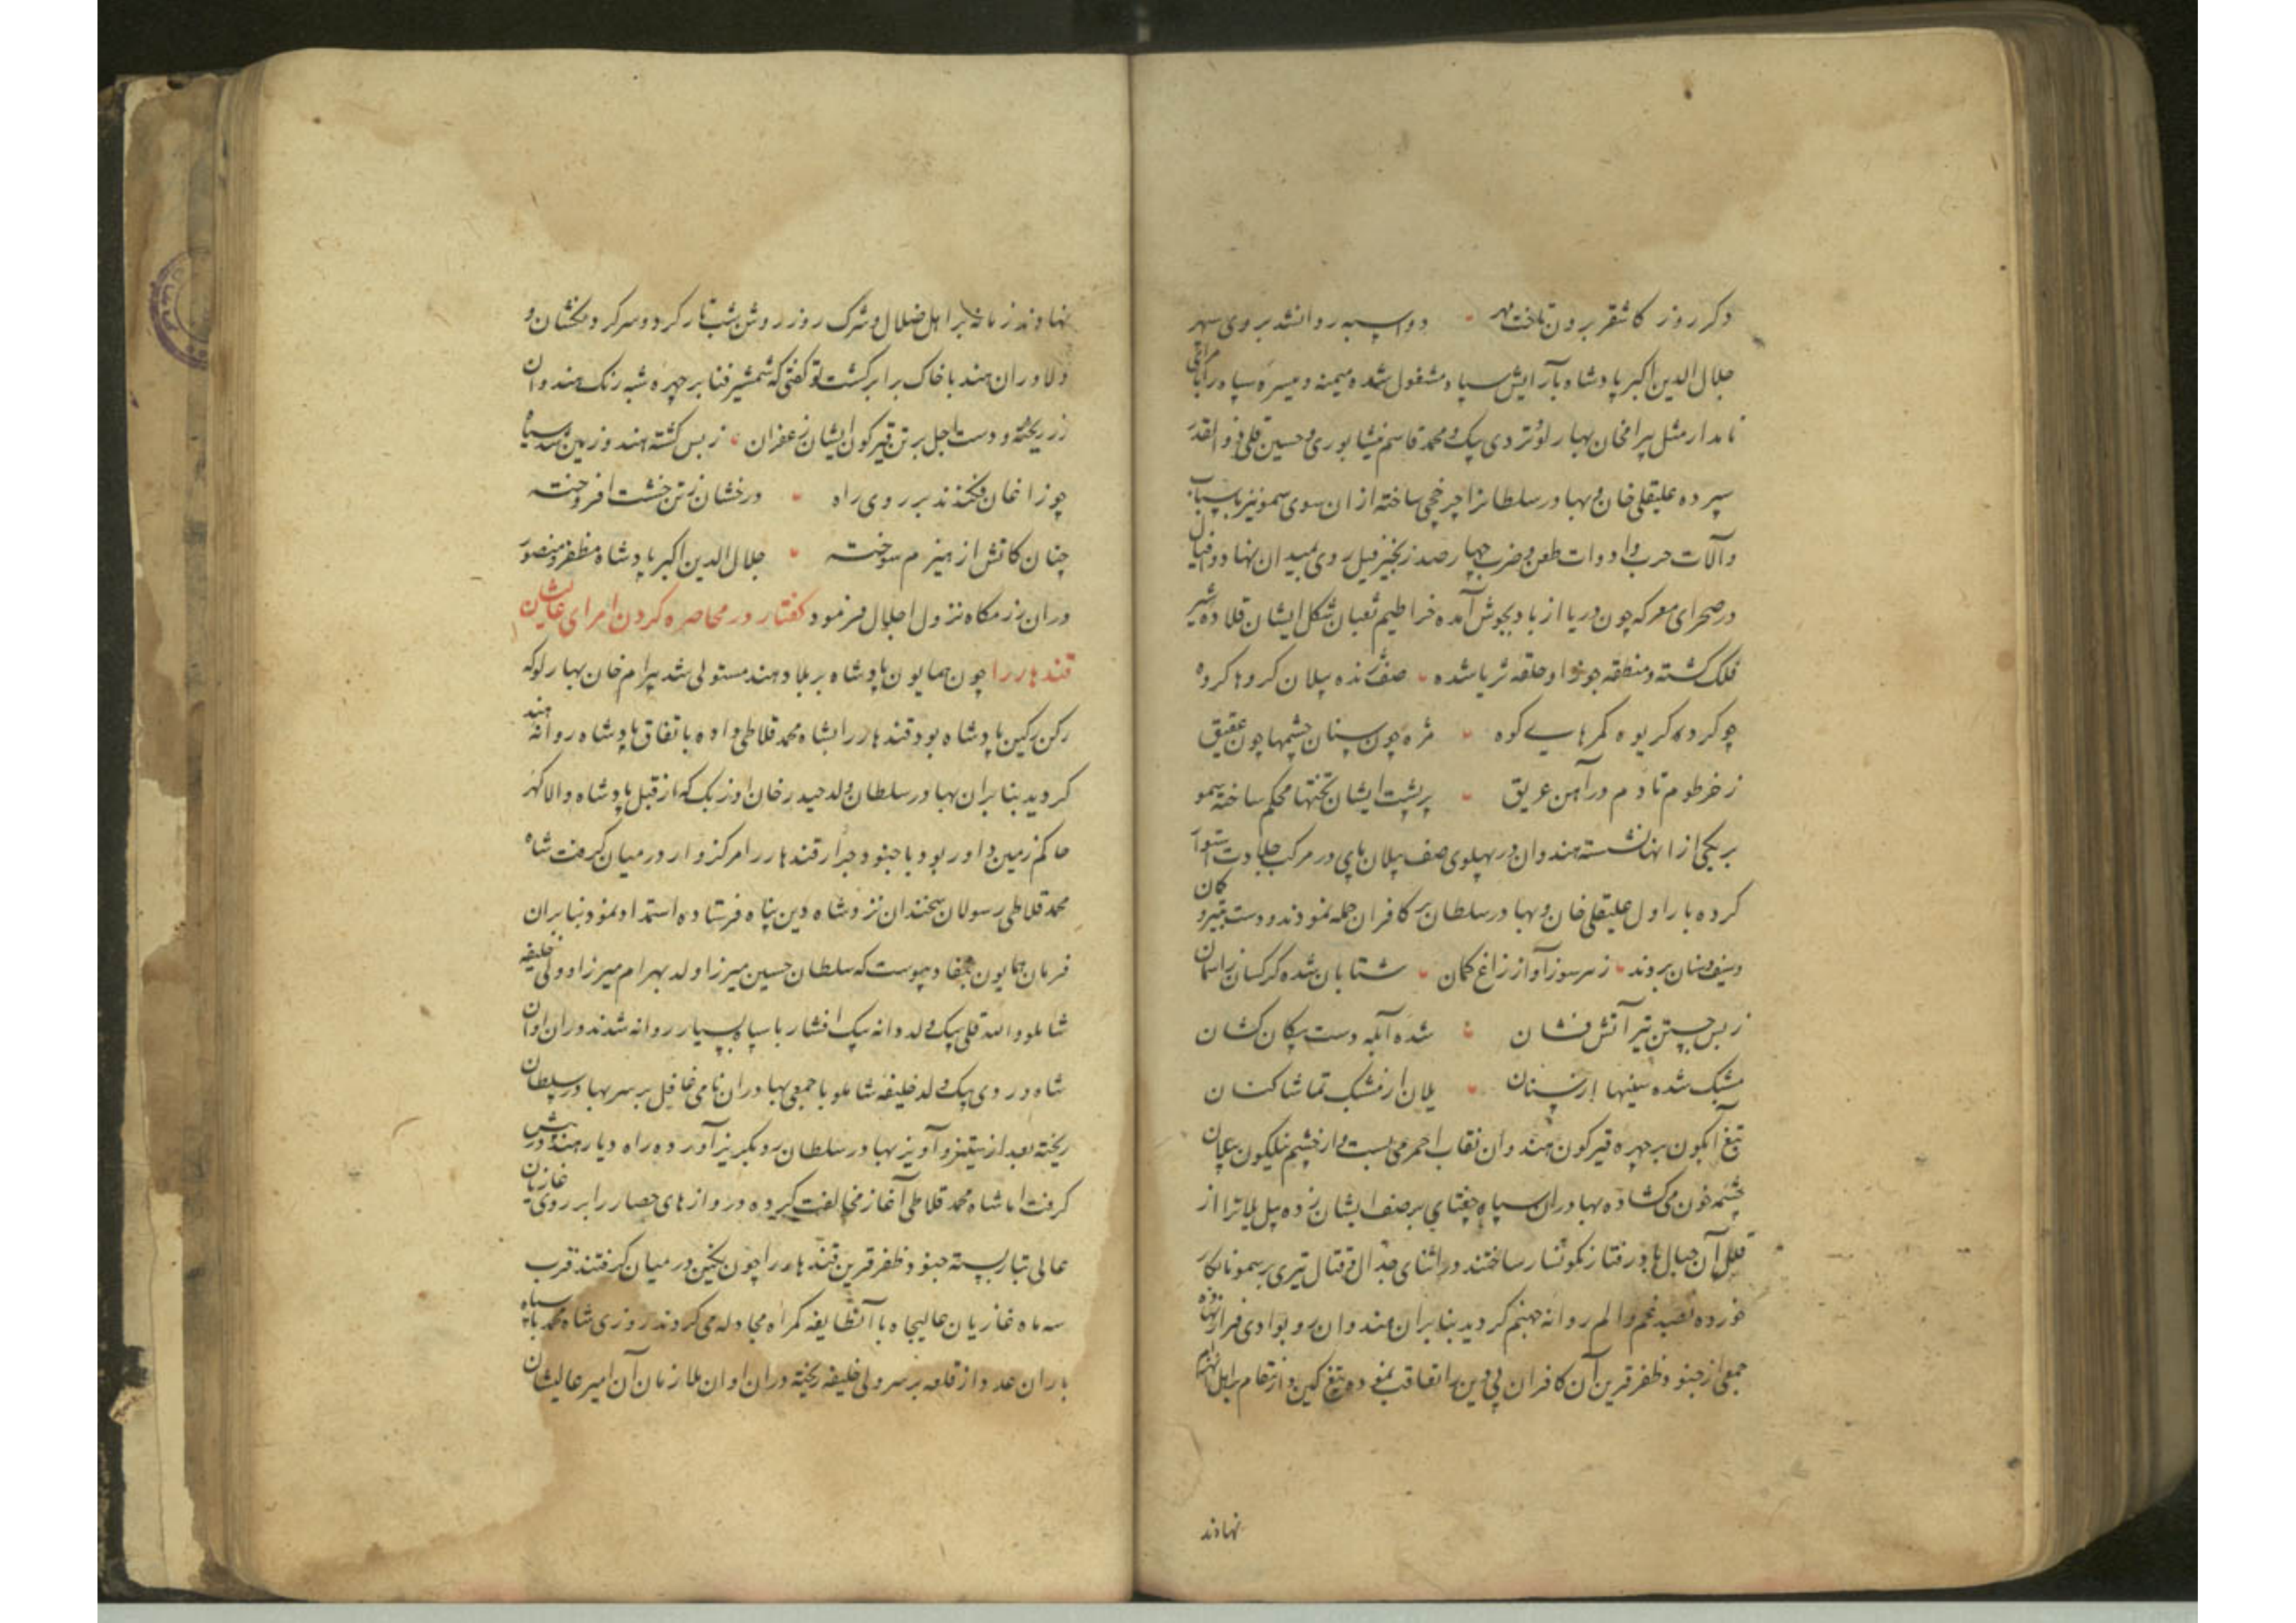 دکر روز کاشقر برون تاخت مهر ٭ دواسپه روانشد بروی سپهر
جلال الدین اکبر پادشاه بآرایش سپاه مشغول شده میمنه و میسره سپاه را بامرای
نامدار مثل پیرامخان بهارلو و تردی بیک و محمد قاسم نیشابوری و حسین قلی ذوالقدر
سپرده علیقلی خان و بهادر سلطانرا چرخچی ساخته از ان سوی هیمو نیز باسپاه
وآلات حرب و ادوات طعن و ضرب چهارصد زنجیر فیل روی بمیدان نهاد و افیال
در صحرای معرکه چون دریا از باد بجوش آمده خراطیم ثعبان شکل ایشان قلاده شیر
فلک کشته و منطقه جوزا و حلقه ثریا شده ٭ صف ژنده پیلان کروها کروه
چو کرد کریوه کمرهای کوه ٭ مژه چون سنان چشمها چون عقیق
ز خرطوم تا دم در آهن غریق ٭ برپشت ایشان تختها محکم ساخته هیمو
بر یکی از انها نشسته هندوان در پهلوی صف پیلان پای در مرکب جلادت استوار
کرده بار اول علیقلی خان و بهادر سلطان بر کافران حمله نمودند و دست بتیر و کمان
وسیف و سنان بردند ٭ ز هر سو ز آواز زاغ کمان ٭ شتابان شده کرکسان ز آسمان
ز بس جستن تیر آتش فشان ٭ شده آبله دست پیکان کشان
مشبک شده سینها از سنان ٭ یلان از مشبک تماشا کنان
تیغ آبکون بر چهره قیرکون هندوان نقاب احمر می بست و از چشم نیلکون
چشمه خون می کشاد بهادران سپاه چغتای بر صف ایشان زده پیل بلا را از
قلل آن جبال با در رفتار نکونسار ساختند در اثنای جدال و قتال تیری بر هیمو نابکار
خورده بصد غم و الم روانه جهنم کردید بنابران هندوان رو بوادی فرار نهاده
جمعی از جنود ظفر قرین آن کافران بی دین را تعاقب نموده تیغ کین و انتقام بر اهل انهزام
نهادند
نهادند زمانه بر اهل ضلال و شرک روز روشن شب تار کرد و سرکردنکشان و
دلاوران هند با خاک برابر کشت تو کفتی که شمشیر فنا بر چهره شبه رنک هندوان
زر ریخته و دست اجل بر تن قیرکون ایشان زعفران ٭ ز بس کشته هندو زمین شد سیاه
چو زاغان فکندند بر روی راه ٭ درخشان ز تن خشت افروخته
چنان کاتش از هیزم سوخته ٭ جلال الدین اکبر پادشاه مظفر و منصور
در ان رزمکاه نزول اجلال فرمود کفتار در محاصره کردن امرای عالیشان
قندهار را چون همایون پادشاه بر بلاد هند مستولی شد پیرام خان بهارلو که
رکن رکین پادشاه بود قندهار را بشاه محمد قلاطی داده باتفاق پادشاه روانه هند
کردید بنابران بهادر سلطان ولد حیدر خان اوزبک که از قبل پادشاه والاکهر
حاکم زمین داور بود با جنود جرار قندهار را مرکزوار در میان کرفت شاه
محمد قلاطی رسولان سخندان نزد شاه دین پناه فرستاده استمداد نمود بنابران
فرمان همایون بنفاد پیوست که سلطان حسین میرزا ولد بهرام میرزا و ولی خلیفه
شاملو و الله قلی بیک ولد دانه بیک افشار با سپاه بسیار روانه شدند در ان اوان
شاه وردی بیک ولد خلیفه شاملو با جمعی بهادران نامی غافل بر سر بهادر سلطان
ریخته بعد از ستیز و آویز بهادر سلطان رو بکریز آورده راه دیار هند در پیش
کرفت اما شاه محمد قلاطی آغاز مخالفت کرده دروازهای حصار را بر روی غازیان
عالی تبار بسته جنود ظفر قرین قندهار را چون نکین در میان کرفتند قرب
سه ماه غازیان عالیجاه با آنطایفه کمراه مجادله می کردند روزی شاه محمد با سپاه
باران عدد از قلعه بر سر ولی خلیفه ریخته در ان اوان ملازمان آن امیر عالیشان